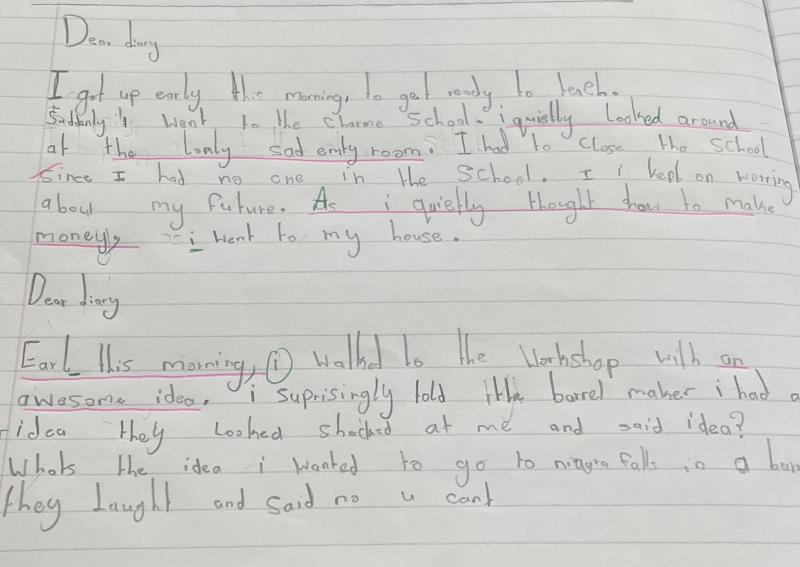 Dear diary
I got up early this morning, to get ready to teach.
Suddenly i want to the charme School. i quietly looked around
at the lonly sad emty room. I had to close the school
Since I had no one in the school. I i kept on worring
about my future. As i quietly thought how to make
money, i went to my house.
Dear diary
Earl this morning, i walked to the workshop with an
awesome idea. i suprisingly told the barrel maker i had a
idea they looked shocked at me and said idea?
Whats the idea i wanted to go to niagra falls in a
they laught and said no u cant